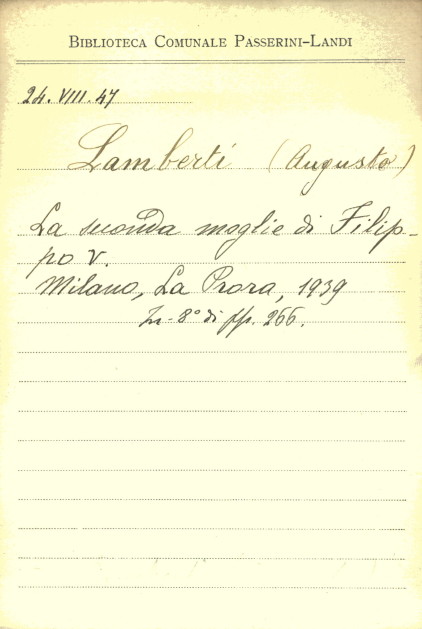 BIBLIOTECA COMUNALE PASSERINI-LANDI
24. VIII. 47
Lamberti (Augusto)
La seconda moglie di Filip-
po V.
Milano, La Prora, 1939
In-8° di pp. 266.